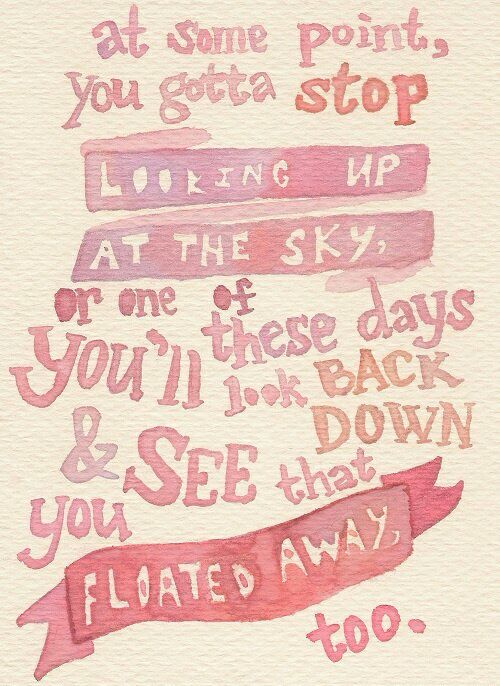 at some point,
you gotta stop
LOOKING UP
AT THE SKY,
or one of
these days
YOU'll look BACK
DOWN
& SEE that
you
FLOATED AWAY,
too.